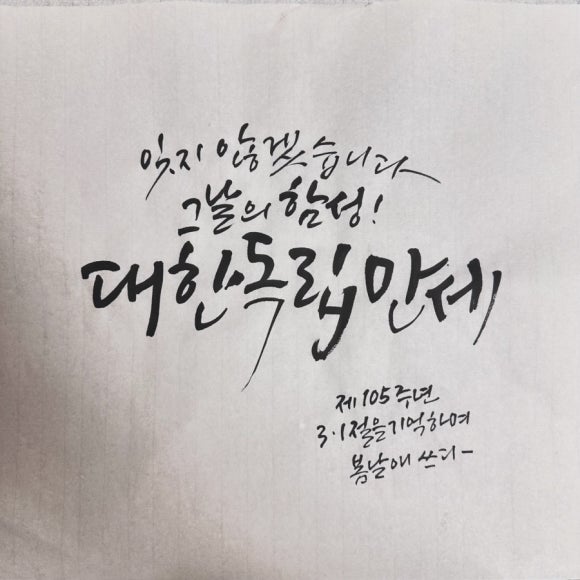 잊지 않겠습니다
그날의 함성!
대한독립만세
제105주년
3·1절을기억하며
봄날애 쓰다-